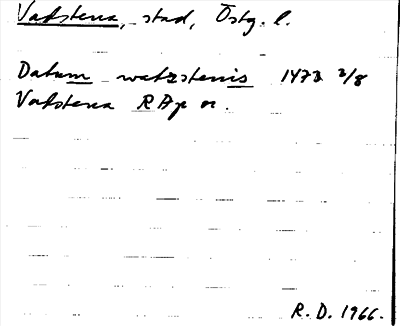 Vadstena, stad, Östg. l.
Datum watzstenis 1473 2/8
Vadstena RAp or.
R. D. 1966.